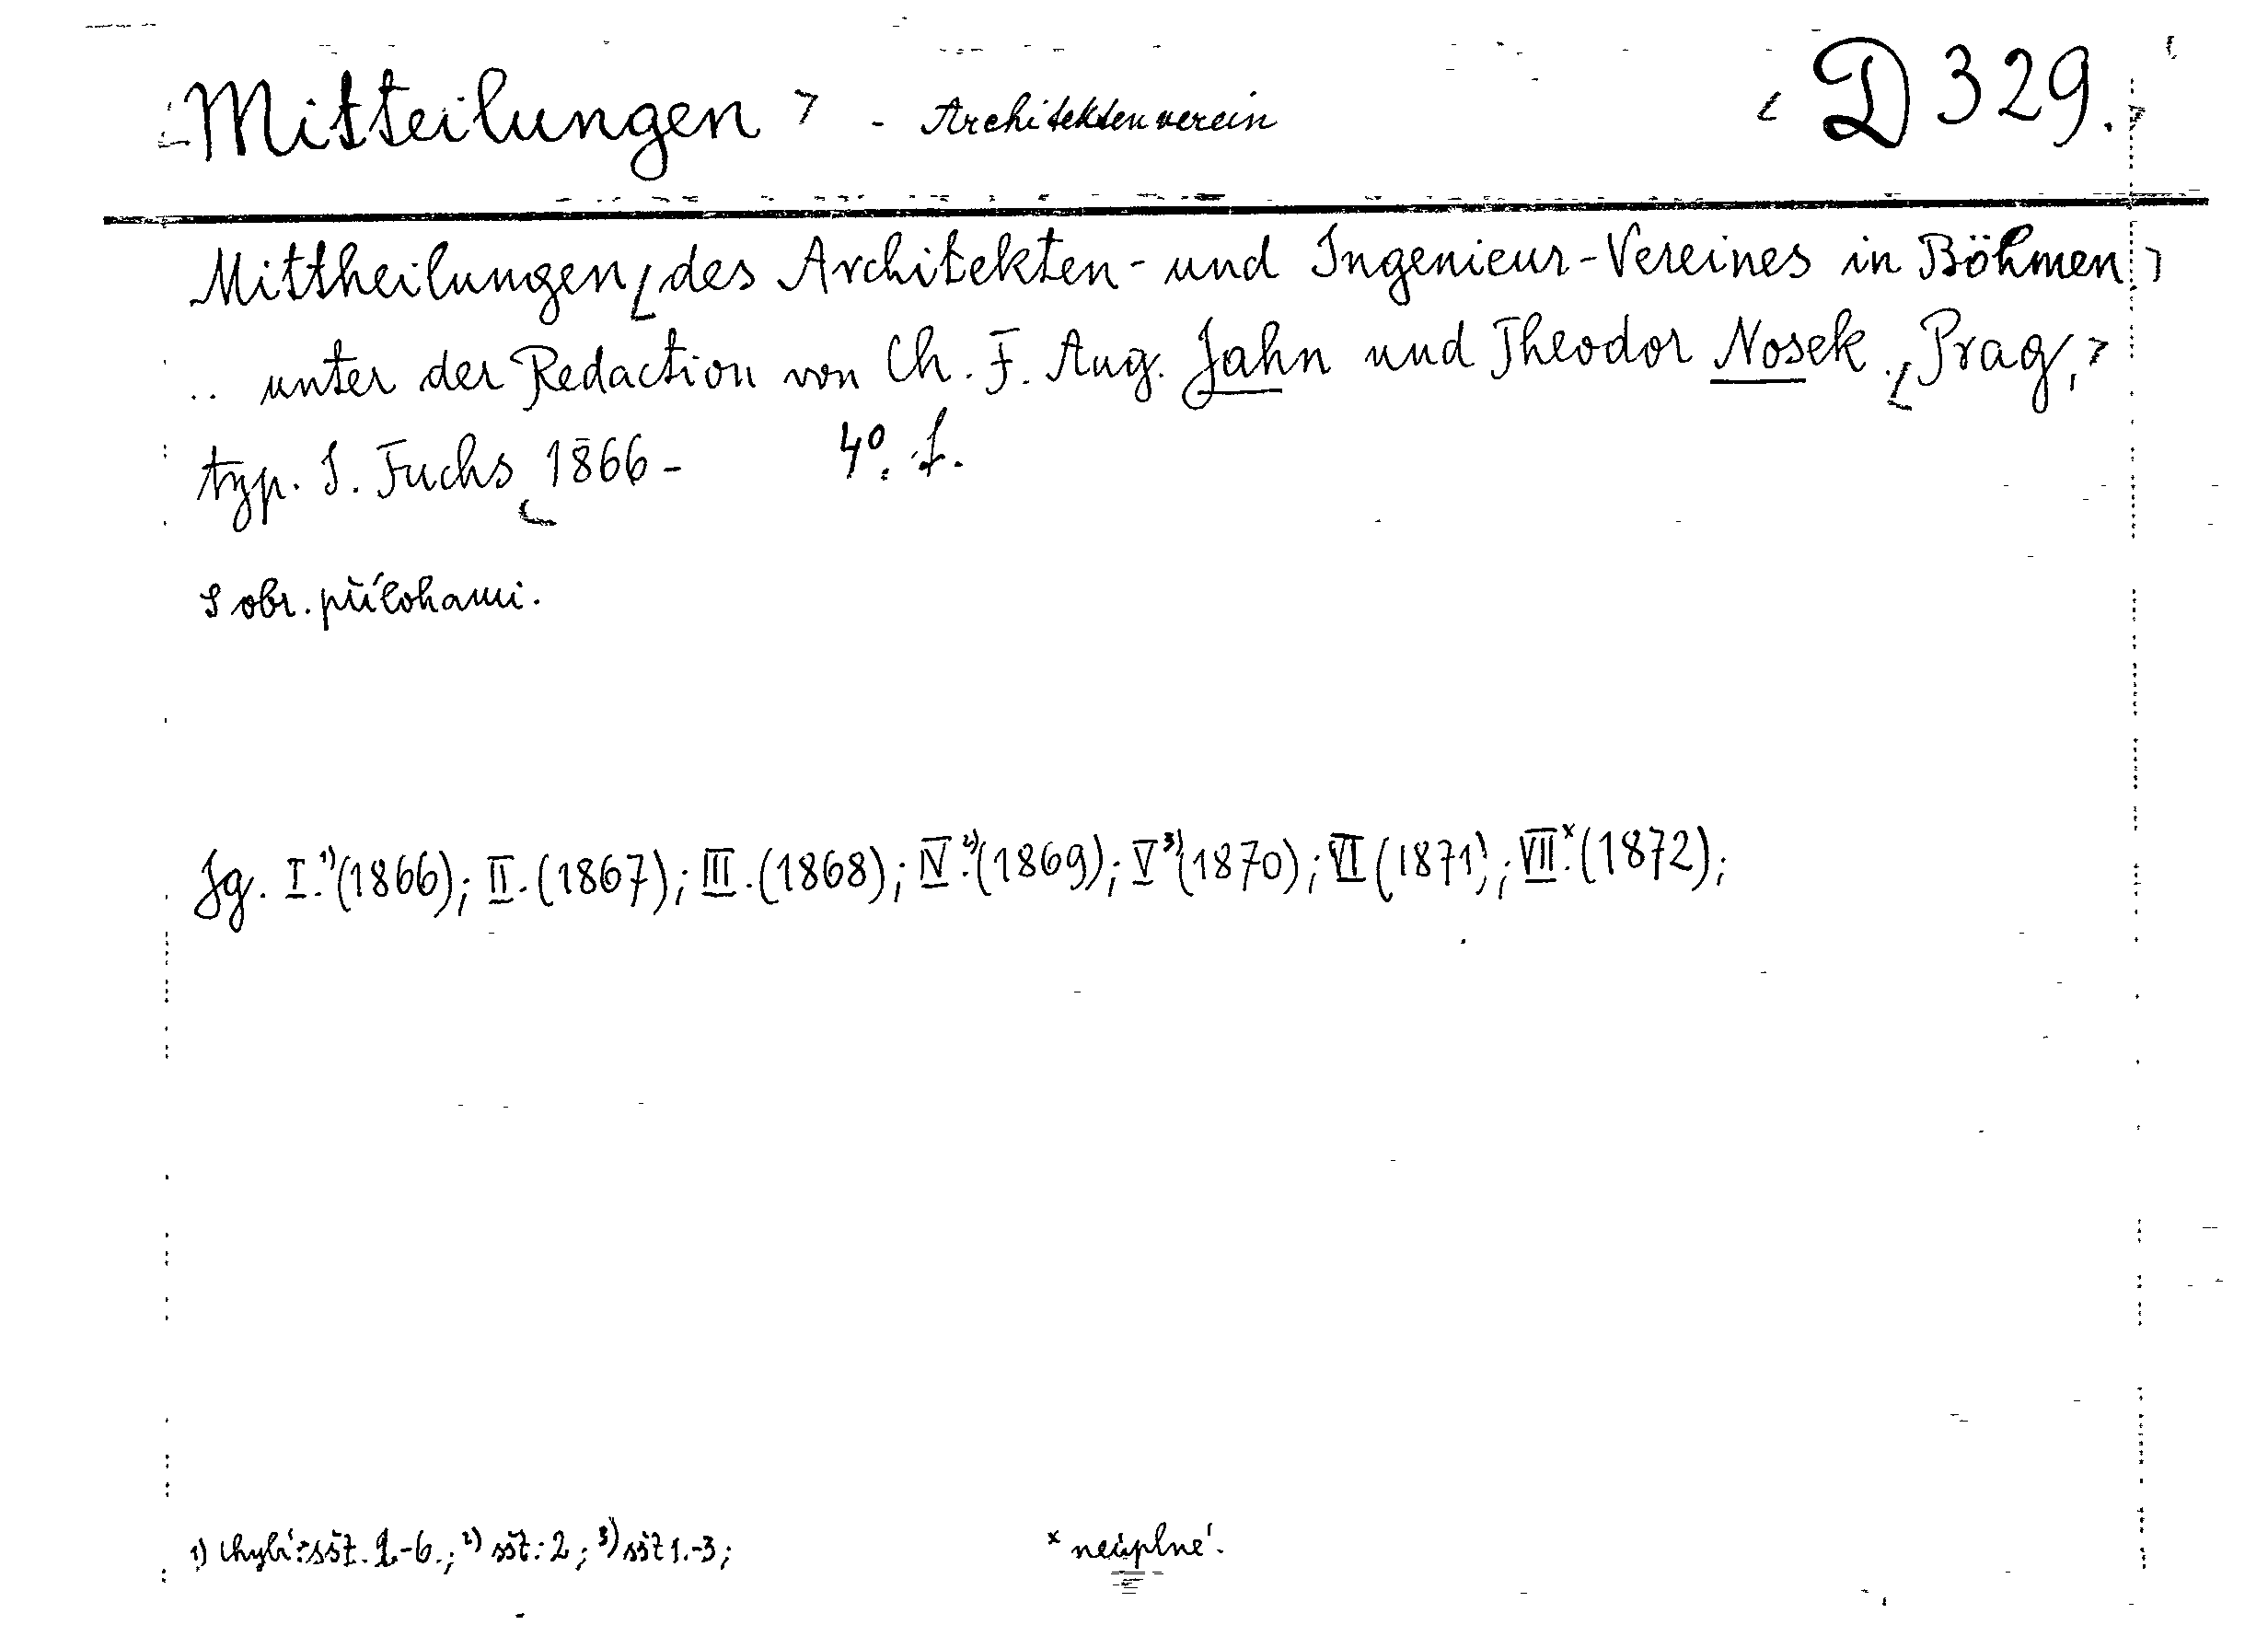 Mitteilungen - Architektenverein D 329.
Mittheilungen des Architekten- und Ingenieur-Vereines in Böhmen
.. unter der Redaction von Ch. F. Aug. Jahn und Theodor Nosek. Prag,
typ. S. Fuchs 1866 - 4°. f.
S obr. přílohami.
Jg. I.¹⁾(1866); II. (1867); III. (1868); IV.²⁾(1869); V³⁾(1870); VI (1871); VII.ˣ (1872);
1) chybí: sšt. 2.-6.; 2) sšt: 2; 3) sšt 1.-3; x neúplné.